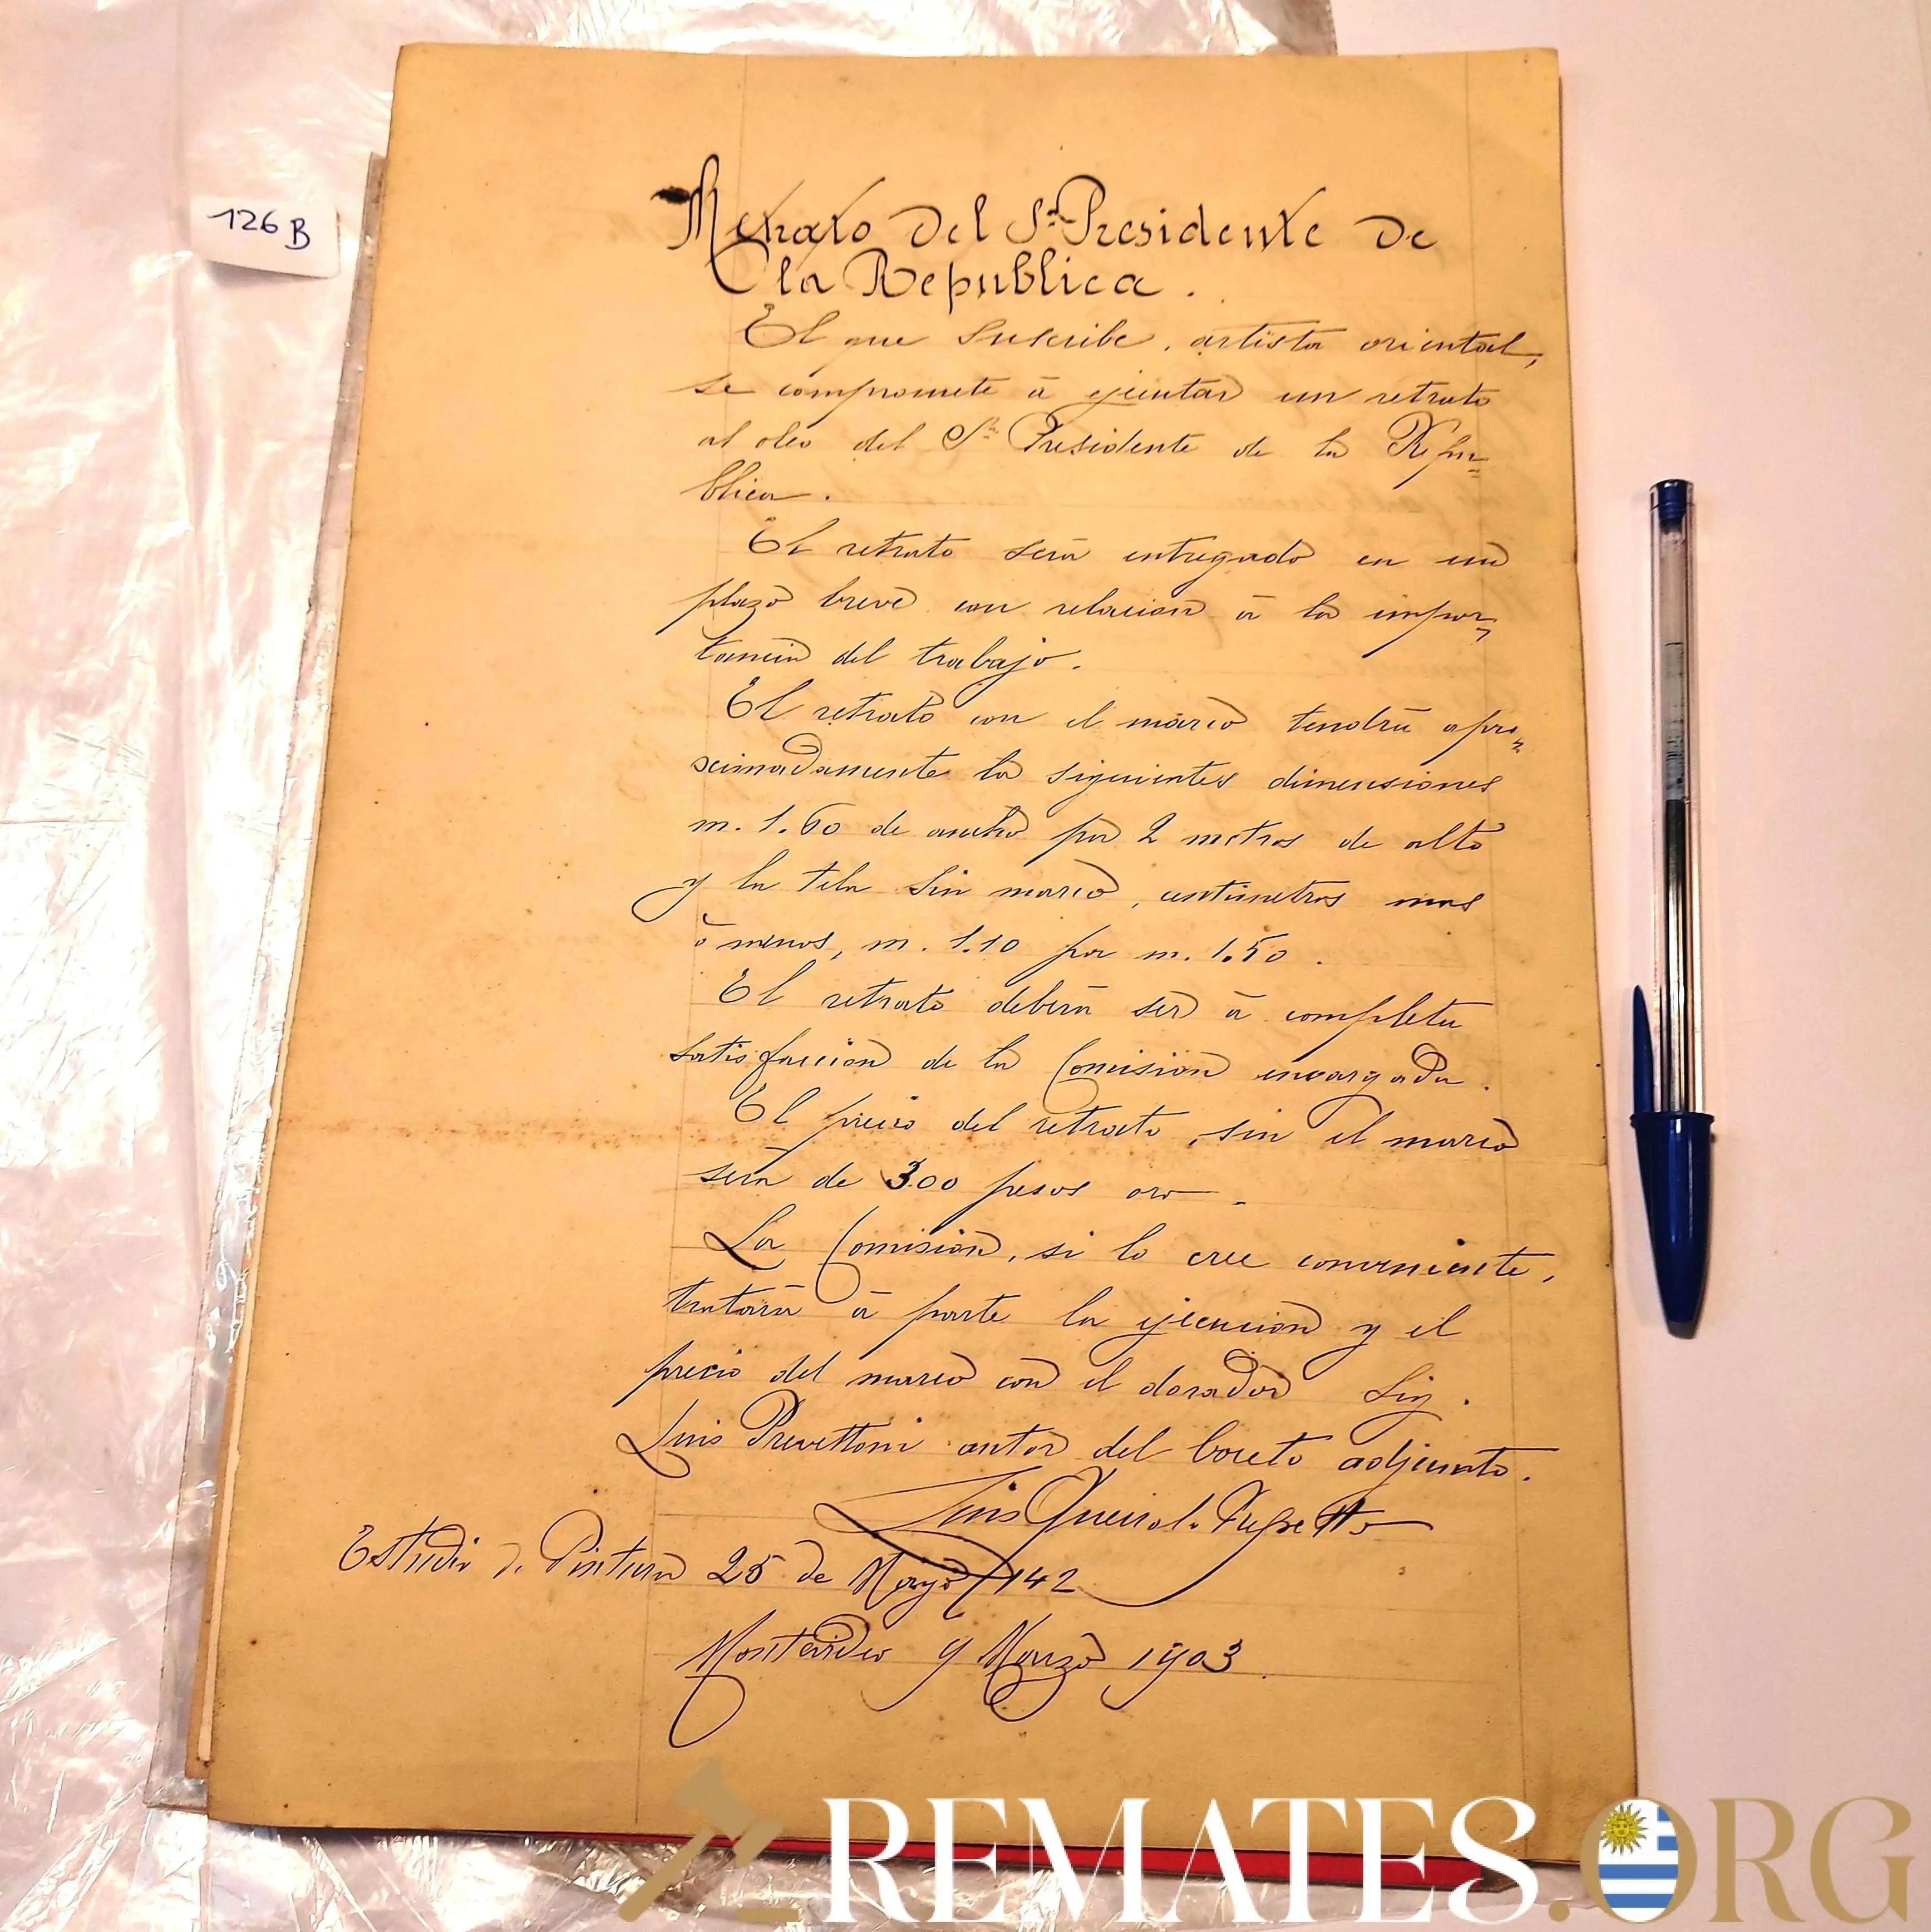 126 B
Retrato del Sr. Presidente de
la Republica.
El que suscribe, artista oriental,
se compromete á ejecutar un retrato
al oleo del Sr. Presidente de la Repu=
blica.
El retrato será entregado en un
plazo breve con relacion á la impor=
tancia del trabajo.
El retrato con el marco tendrá apro=
ximadamente la siguientes dimensiones
m. 1.60 de ancho por 2 metros de alto
y la tela sin marco, centimetros mas
ò menos, m. 1.10 por m. 1.50.
El retrato deberá ser á completa
satisfaccion de la Comision encargada.
El precio del retrato, sin el marco
será de 300 pesos oro.
La Comision, si lo cree conveniente,
tratará á parte la ejecucion y el
precio del marco con el dorador Sig.
Luis Prevettoni autor del boceto adjunto.
Luis Queirolo Repetto
Estudio de Pintura 25 de Mayo 142
Montevideo 9 Marzo 1903.
REMATES.ORG